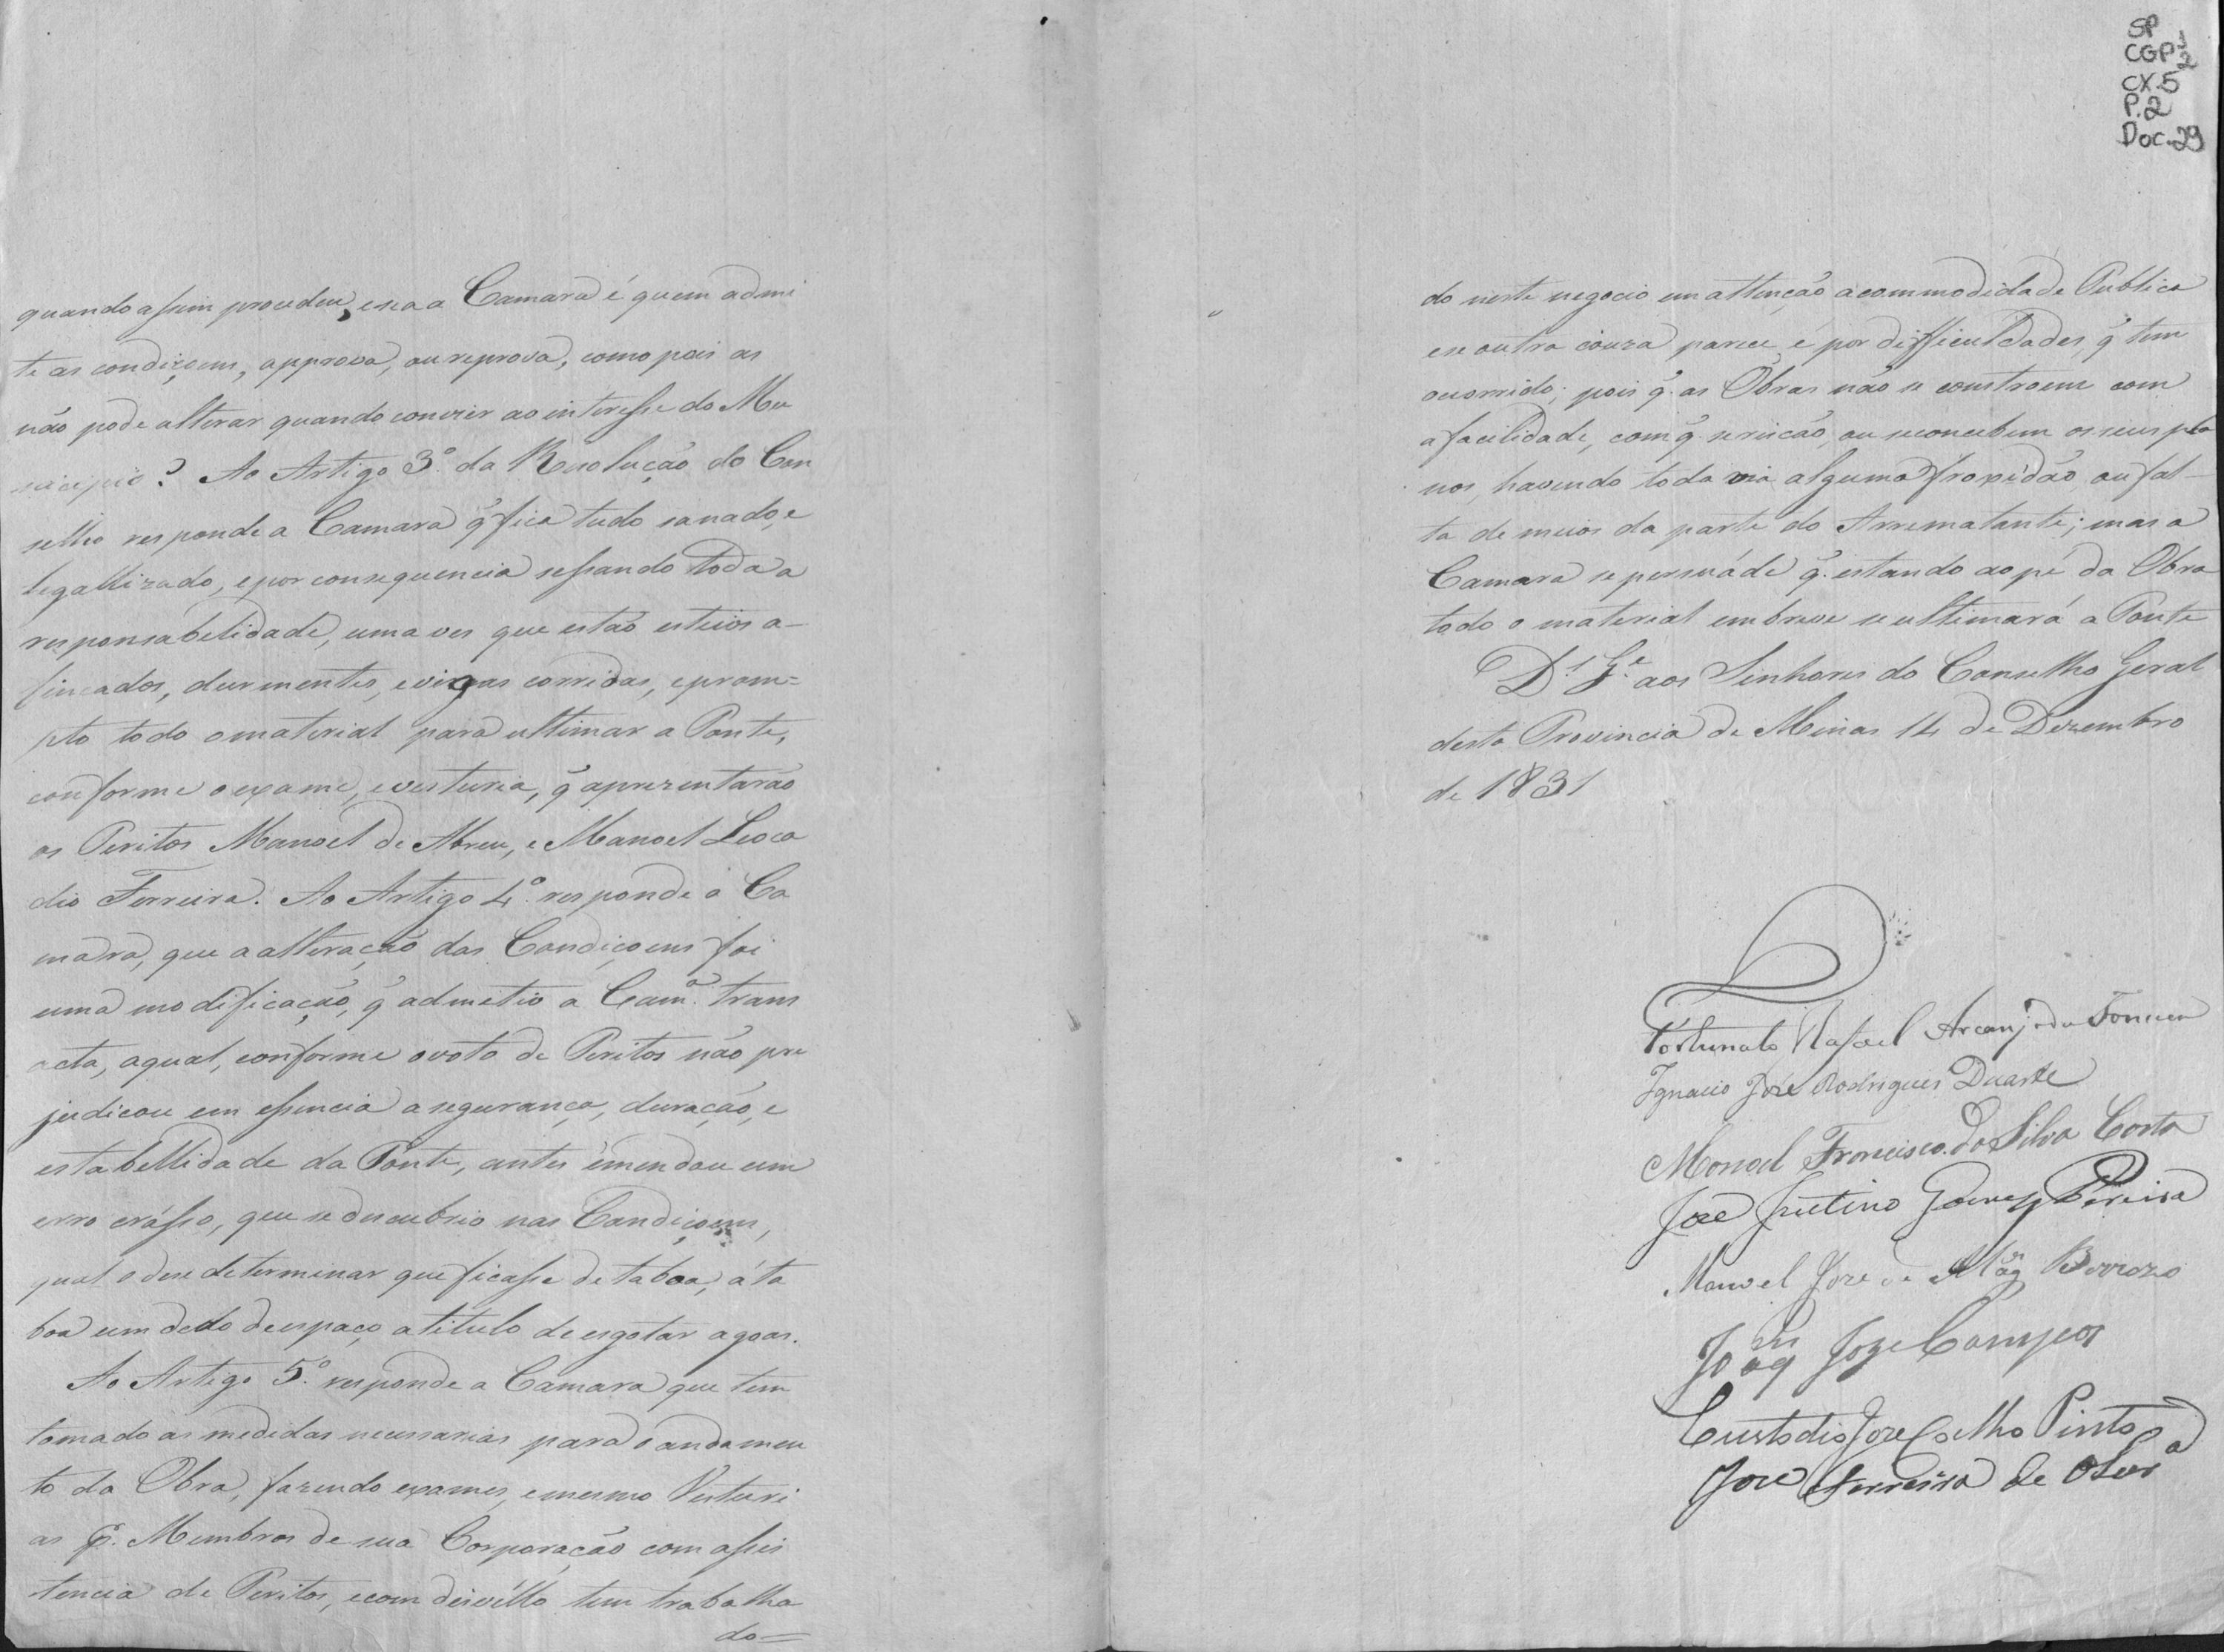 quando assim procedeu, e se a Camara é quem admi
te as condiçoens, approva, ou reprova, como pois as
não pode alterar quando convier ao interesse do Mu
nicipio? Ao Artigo 3º da Rezolução do Con
selho responde a Camara q̃ fica tudo sanado, e
legallizado, e por consequencia sessando toda a
responsabelidade, uma ves que estão esteios a-
fincados, durmentes, e vigas corridas, e prom=
pto todo o material para ultimar a Ponte,
conforme o exame, e vesturia, q̃ aprezentarão
os Peritos Manoel de Abreu, e Manoel Leoca
dio Ferreira. Ao Artigo 4º responde a Ca
mara, que a alteração das Condiçoens foi
uma modificação, q̃ admetio a Camª trans
acta, a qual, conforme o voto de Peritos não pre
judicou em essencia a segurança, duração, e
estabellidade da Ponte, antes emendou um
erro crásso, que se descubrio nas Condiçoens,
qual o de se determinar que ficasse de taboa, á ta
boa um dedo de espaço a titulo de esgotar agoas.
Ao Artigo 5º responde a Camara que tem
tomado as medidas necessarias para o andamen
to da Obra, fazendo exames, e mesmo Vesturi
as p. Membros de sua Corporação com assis
tencia de Peritos, e com disvéllo tem trabalha
do=
SP
CGP 1/2
CX.5
P.2
Doc.29
do neste negocio em attenção a commodidade Publica
e se outra couza parece é por difficuldades, q̃ tem
ocorrido; pois q̃ as Obras não se constroem com
a facilidade, com q̃ se riscão, ou se concebem os seus pla
nos, havendo toda via alguma froxidão, ou fal-
ta de meios da parte do Arrematante; mas a
Camara se persuáde q̃ estando ao pé da Obra
todo o material em breve se ultimará a Ponte
Ds Ge aos Senhores do Conselho Geral
desta Provincia de Minas 14 de Dezembro
de 1831
Fortunato Rafael Arcanjo da Fonseca
Ignacio Jozé Rodrigues Duarte
Manoel Francisco da Silva Costa
José Justino Gomes Pereira
Manoel Joze de Mag Barrozo
Joaqm Joze Campos
Custodio Joze Coelho Pinto
Joze Ferreira de Olivª